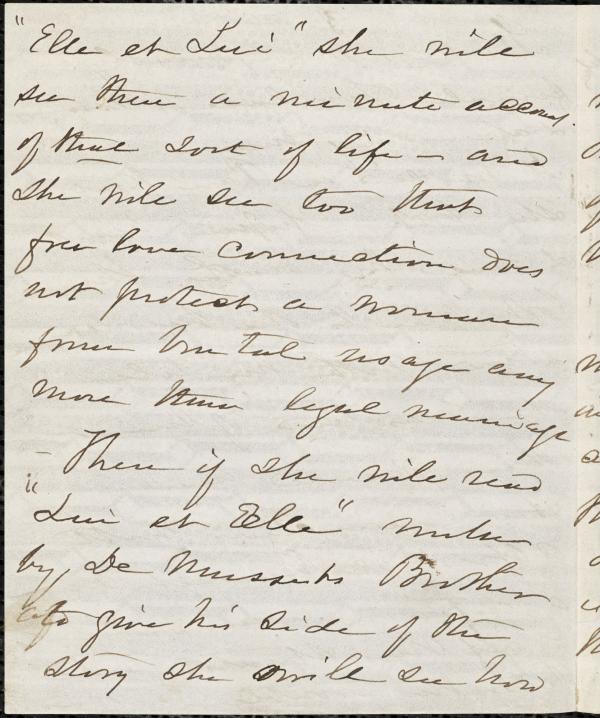 "Elle et Lui" she will
see there a minute account
of that sort of life – and
she will see too that
free love connection does
not protect a woman
from brutal usage any
more than legal marriage
– Then if she will read
"Lui et Elle" written
by De Mussets Brother
to give his side of the
story she will see how